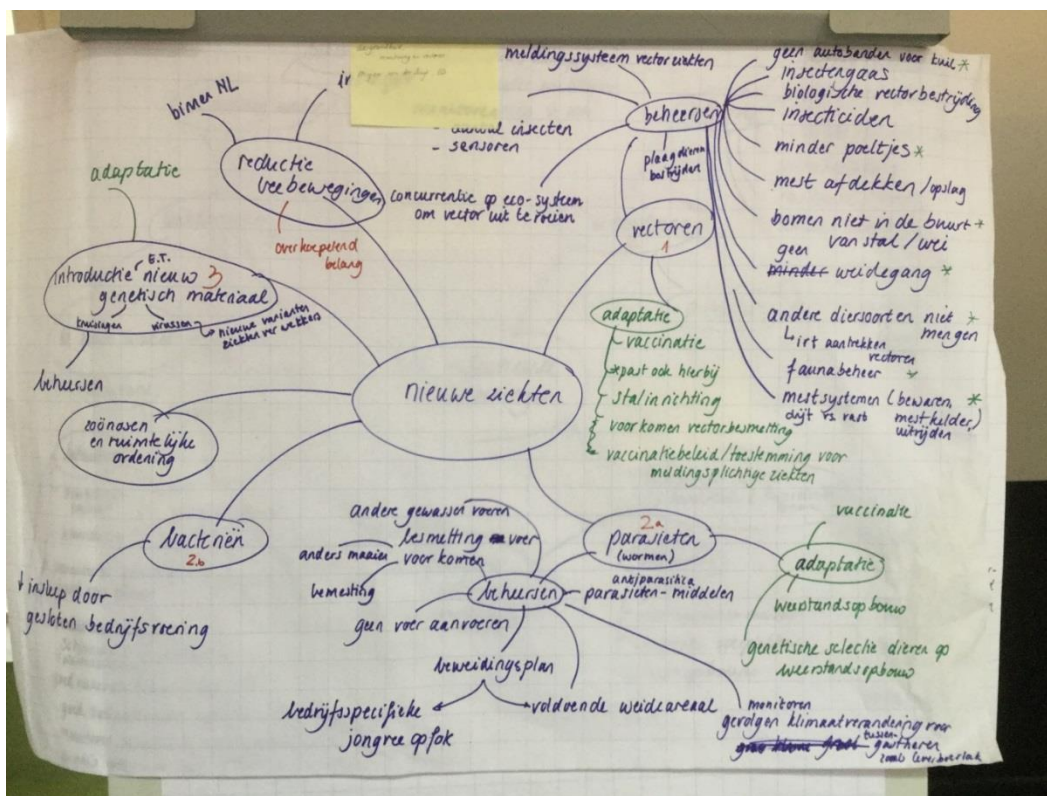 binnen NL
reductie
veebewegingen
overkoepelend
belang
adaptatie
E.T.
introductie nieuw 3
genetisch materiaal
kruisingen
virussen
nieuwe varianten
ziekten verwekkers
beheersen
zoönosen
en ruimtelijke
ordening
bacteriën
2b
↓ insleep door
gesloten bedrijfsvoering
nieuwe ziekten
meldingssysteem vectorziekten
- aantal insecten
- sensoren
concurrentie op eco-systeem
om vector uit te roeien
beheersen
plaagdieren
bestrijden
vectoren
1
geen autobanden voor kuil *
insectengaas
biologische vectorbestrijding
insecticiden
minder poeltjes *
mest afdekken/opslag
bomen niet in de buurt *
van stal/wei
geen
minder weidegang *
andere diersoorten niet *
mengen
irt aantrekken
vectoren
faunabeheer *
mestsystemen (bewaren, *
drijf vs vast mestkelder,)
uitrijden
adaptatie
vaccinatie
* past ook hierbij
stalinrichting
voorkomen vectorbesmetting
vaccinatiebeleid/toestemming voor
meldingsplichtige ziekten
2a
parasieten
(wormen)
vaccinatie
adaptatie
weerstandsopbouw
genetische selectie dieren op
weerstandsopbouw
beheersen
antiparasitica
parasieten-middelen
andere gewassen voeren
besmetting voer
voorkomen
anders maaien
bemesting
geen voer aanvoeren
beweidingsplan
bedrijfsspecifieke
jongvee opfok
voldoende weideareaal
monitoren
gevolgen klimaatverandering voor
tussen
gastheren
zoals leverbotslak